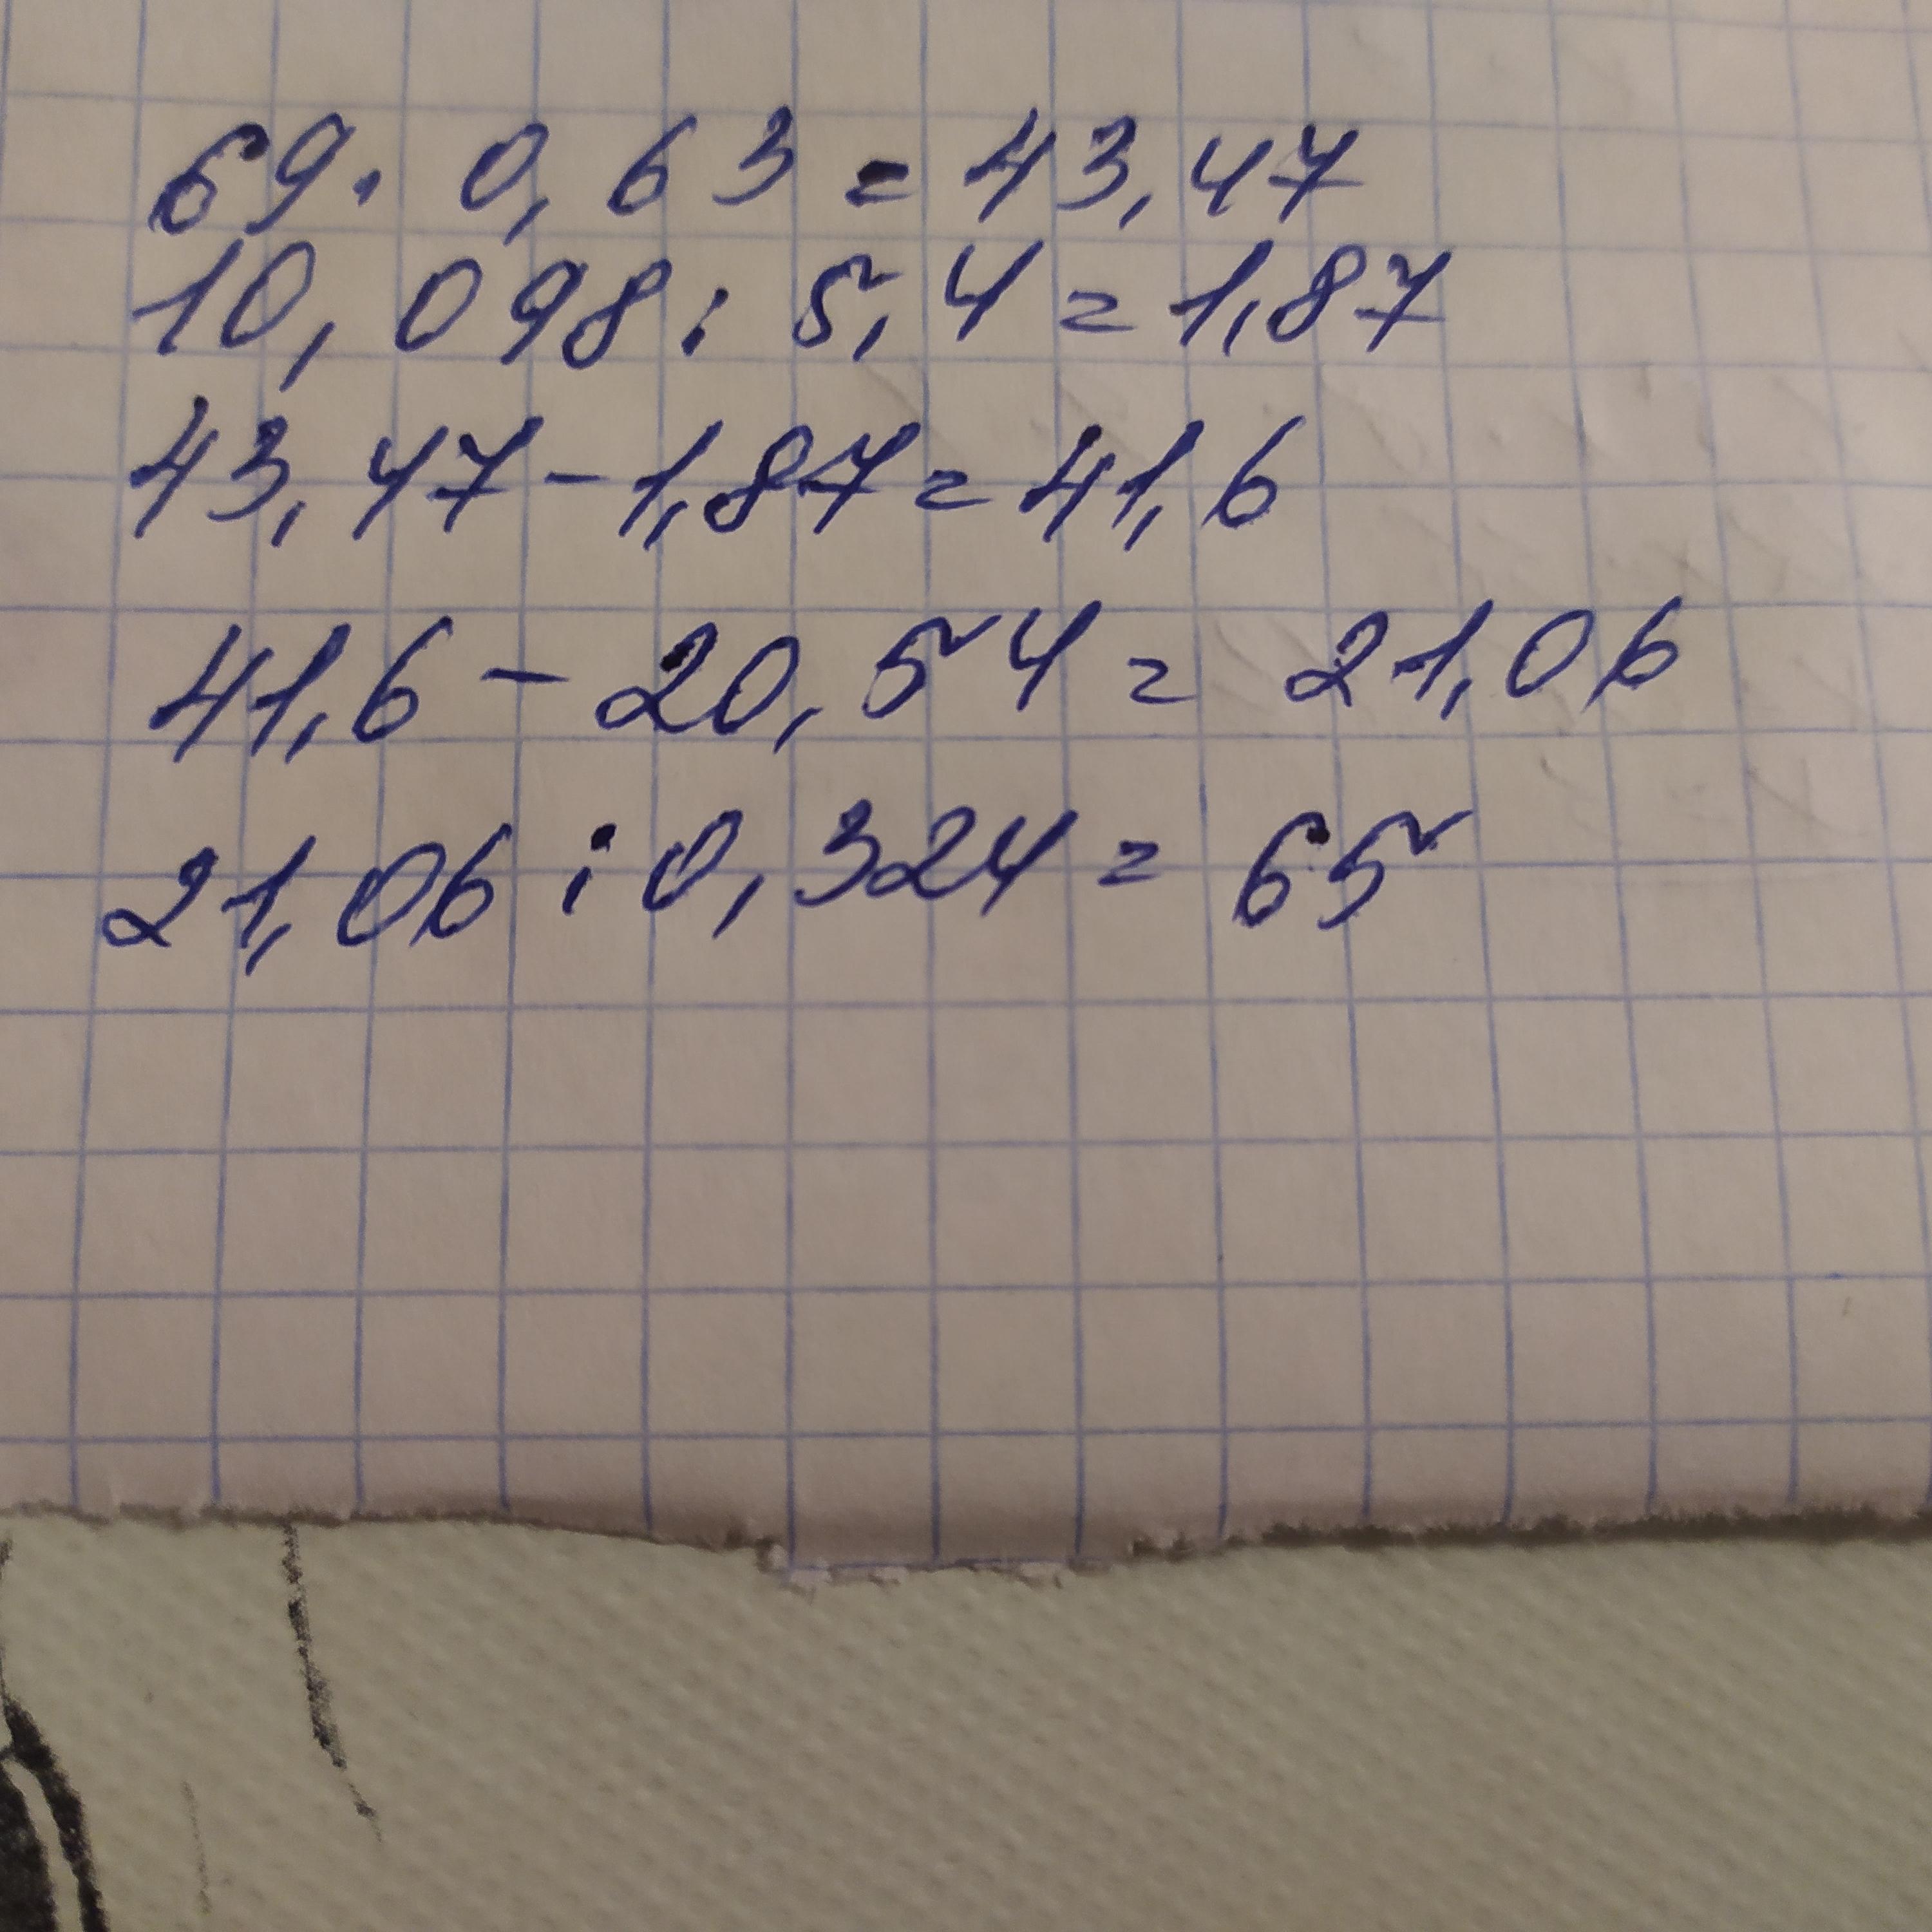 69 · 0,63 = 43,47
10,098 : 5,4 = 1,87
43,47 - 1,87 = 41,6
41,6 - 20,54 = 21,06
21,06 : 0,324 = 65